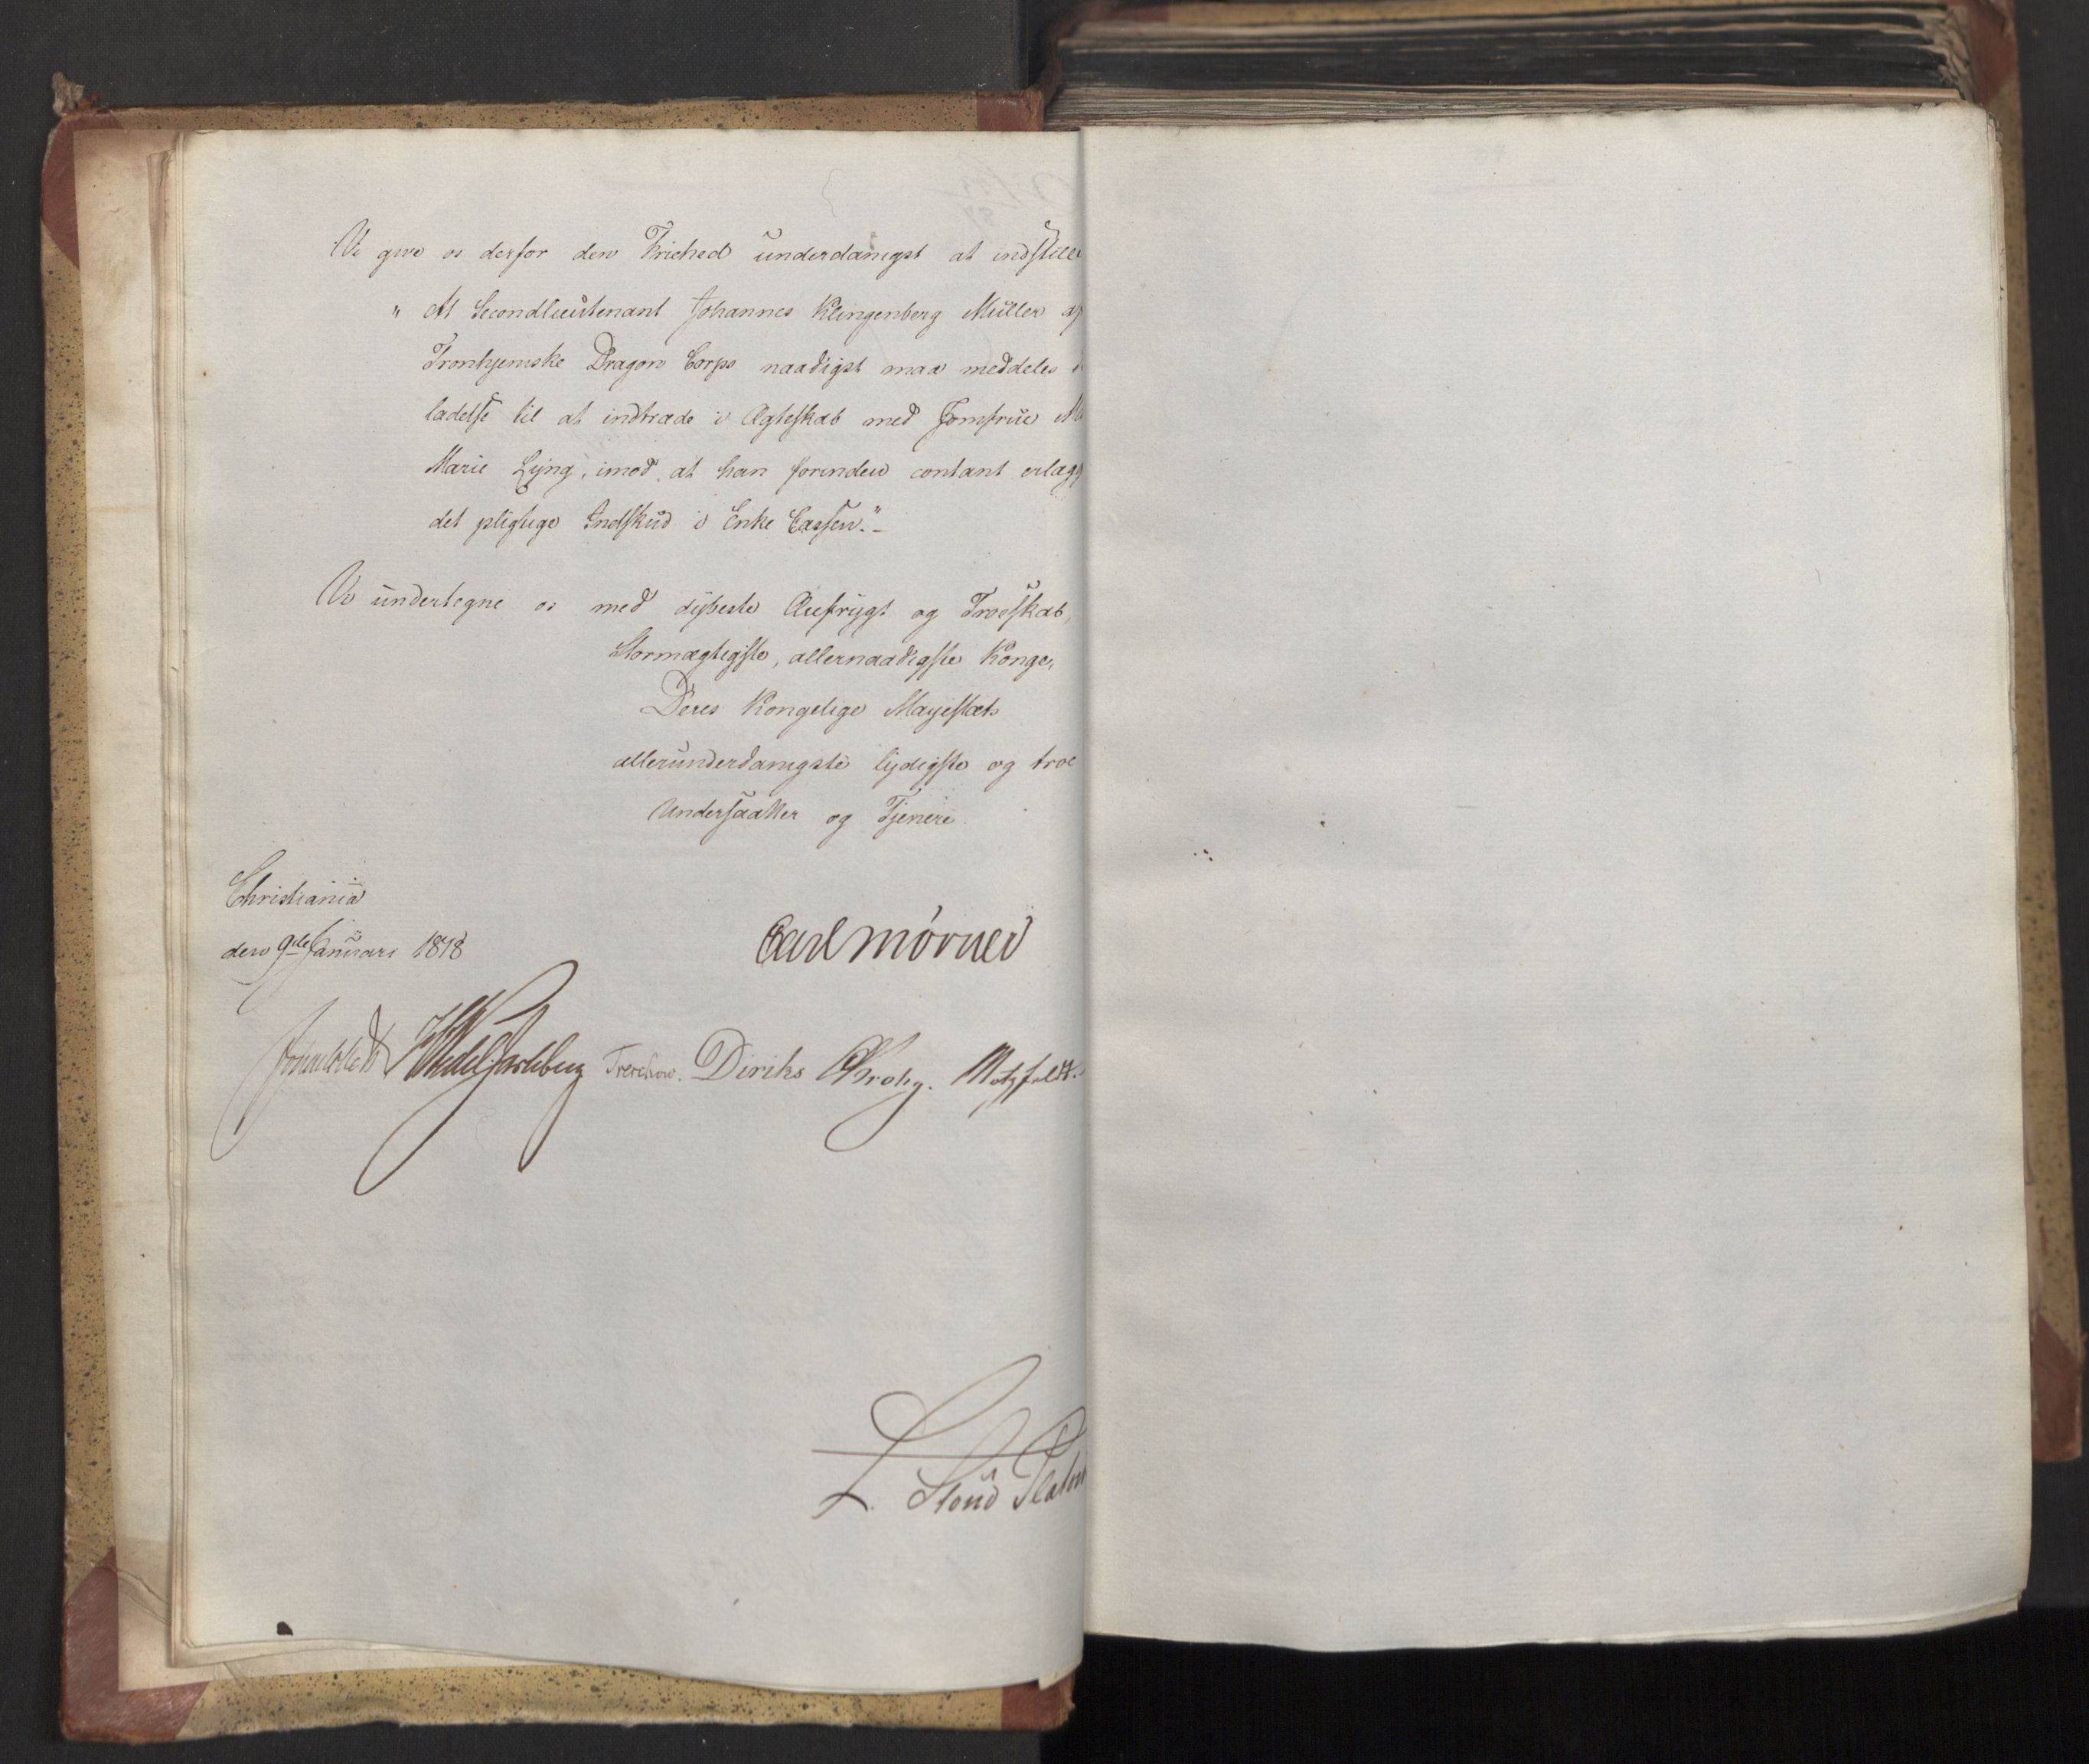 Vi give os derfor den Friehed underdanigst at indstille
" At Secondlieutenant Johannes Klingenberg Müller af
Tronhjemske Dragon Corps naadigst maa meddeles
ladelse til at indtræde i Ægteskab med Jomfrue
Marie Lyng, imod at han forinden contant erlægg
det pligtige Indskud i Enke Cassen."-
Vi undertegne os med dybeste Ærefrygt og Troeskab,
Stormægtigste, allernaadigste Konge,
Deres Kongelige Majestæts
allerunderdanigste lydigste og troe
Undersaatter og Tjenere.
Christiania
den 9de Januari 1818
Carl Mörner
Wedel Jarlsberg Treschow. Diriks Krohg. Motzfeldt.
L. Stoud Platou